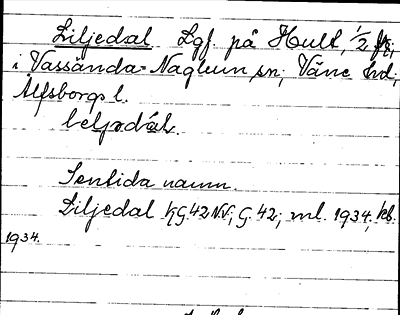 Liljedal Lgf. på Hult, 1/2
i Vassända-Naglum sn; Väne hd;
Älfsborgs l.
Sentida namn.
Liljedal KG.42 NV; G. 42; ml. 1934, kb.
1934.